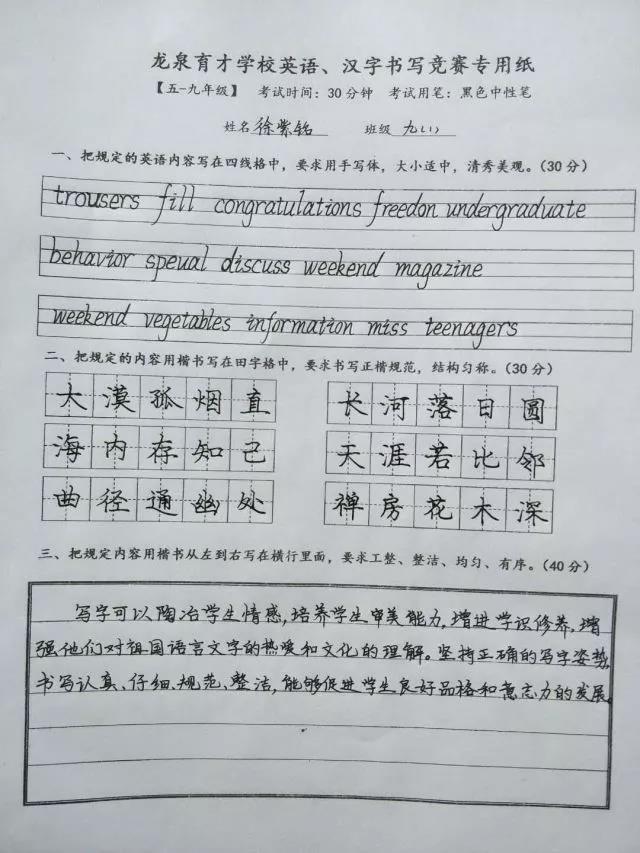 龙泉育才学校英语、汉字书写竞赛专用纸
【五-九年级】 考试时间：30分钟 考试用笔：黑色中性笔
姓名 徐紫铭 班级 九(1)
一、把规定的英语内容写在四线格中，要求用手写体，大小适中，清秀美观。（30分）
trousers fill congratulations freedon undergraduate
behavior speual discuss weekend magazine
weekend vegetables information miss teenagers
二、把规定的内容用楷书写在田字格中，要求书写正楷规范，结构匀称。（30分）
大漠孤烟直 长河落日圆
海内存知己 天涯若比邻
曲径通幽处 禅房花木深
三、把规定内容用楷书从左到右写在横行里面，要求工整、整洁、均匀、有序。（40分）
写字可以陶冶学生情感，培养学生审美能力，增进学识修养，增
强他们对祖国语言文字的热爱和文化的理解。坚持正确的写字姿势，
书写认真、仔细、规范、整洁，能够促进学生良好品格和意志力的发展。